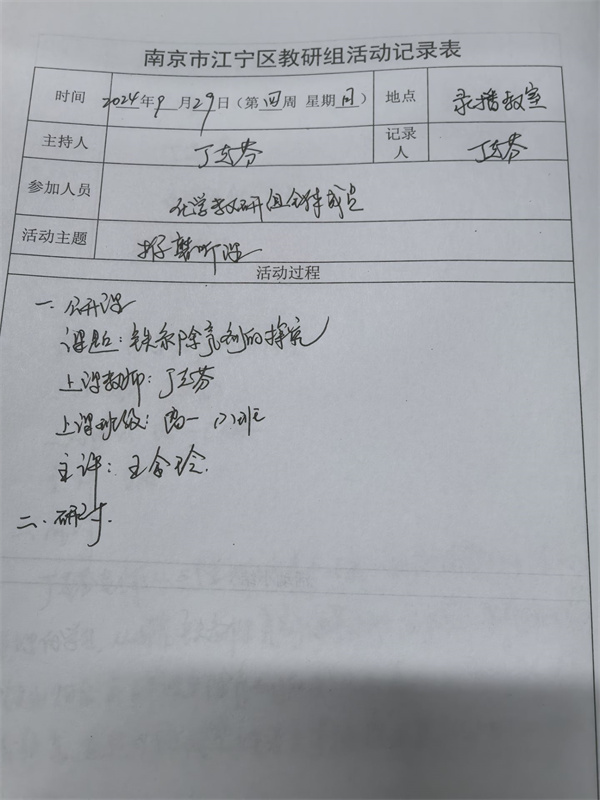 南京市江宁区教研组活动记录表
时间 2024年9月29日（第四周 星期日） 地点 录播教室
主持人 丁芬 记录人 丁芬
参加人员 化学教研组全体成员
活动主题 听课
活动过程
一、公开课
课题：铁系除氧剂的探究
上课教师：丁芬
上课班级：高一（）班
主评：王玲
二、研讨.